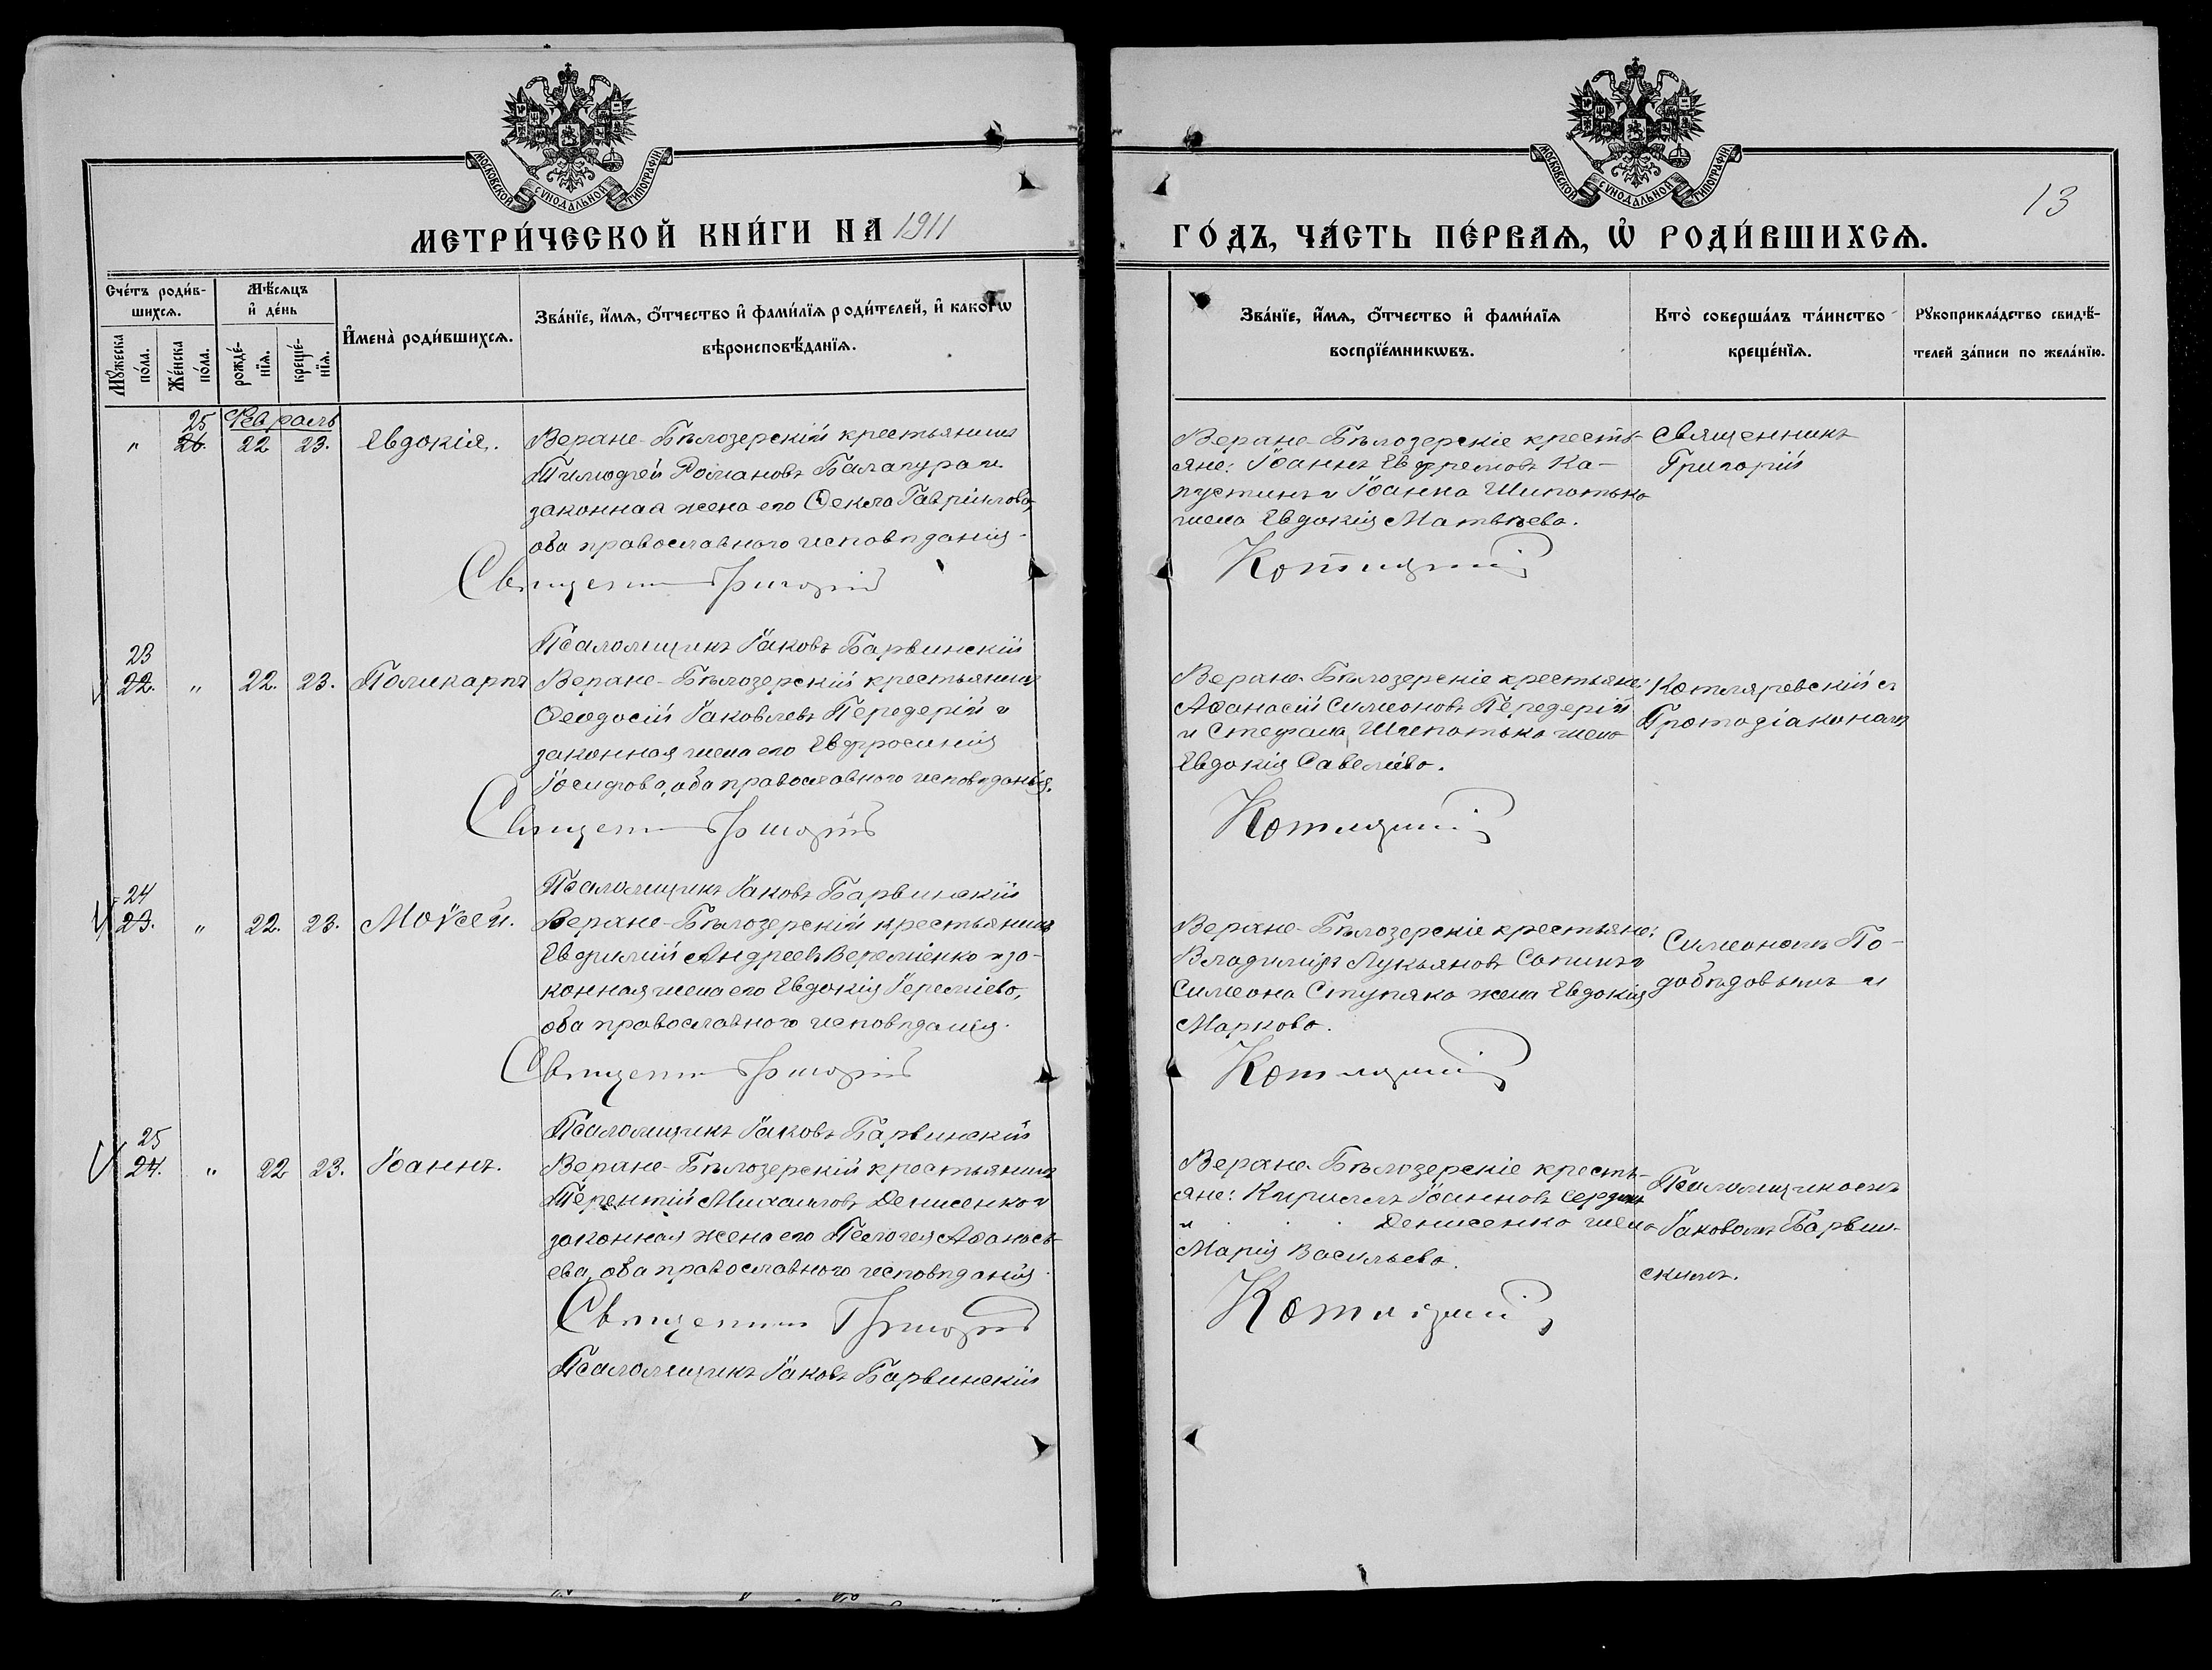 МОСКОВСКОЙ СѴНОДАЛЬНОЙ ТИПОГРАФІИ
МЕТРИ́ЧЕСКОЙ КНИ́ГИ НА 1911
Сче́тъ роди́в-
шихсѧ.
Мꙋ́жеска
по́ла.
Же́нска
по́ла.
Мѣ́сѧцъ
и҆ де́нь
рожде́-
нїѧ.
креще́-
нїѧ.
И҆мена̀ роди́вшихсѧ.
Зва́нїе, и҆́мѧ, ѻ҆́тчество и҆ фами́лїѧ роди́телей, и҆ како́гѡ
вѣроисповѣ́данїѧ.
25 Февраль
" 26. 22 23. Евдокія.
Верхне-Бѣлозерскій крестьянинъ
Тимоѳей Романовъ Балагура и
законная жена его Ѳекла Гавріилова,
оба православного исповѣданія.
Священникъ Григорій
Псаломщикъ Іаковъ Барвинскій
23
22. " 22. 23. Поликарпъ
Верхне-Бѣлозерскій крестьянинъ
Ѳеодосій Іаковлевъ Передерій и
законная жена его Евфросинія
Іосифова, оба православного исповѣданія.
Священникъ Григорій
Псаломщикъ Іаковъ Барвинскій
24
23. " 22. 23. Моѵсей.
Верхне-Бѣлозерскій крестьянинъ
Евфимій Андреевъ Веремѣенко и за-
конная жена его Евдокія Іереміева,
оба православного исповѣданія.
Священникъ Григорій
Псаломщикъ Іаковъ Барвинскій
25
24. " 22 23. Іоаннъ.
Верхне-Бѣлозерскій крестьянинъ
Терентій Михаиловъ Денисенко и
законная жена его Пелагея Аѳанась-
ева, оба православного исповѣданія.
Священникъ Григорій
Псаломщикъ Іаковъ Барвинскій
МОСКОВСКОЙ СѴНОДАЛЬНОЙ ТИПОГРАФІИ
13
ГО́ДЪ, ЧА́СТЬ ПЕ́РВАѦ, Ѡ҆ РОДИ́ВШИХСѦ.
Зва́нїе, и҆́мѧ, ѻ҆́тчество и҆ фами́лїѧ
воспрїе́мникѡвъ.
Кто̀ соверша́лъ та́инство
креще́нїѧ.
Рꙋкоприкла́дство свидѣ́-
телей за́писи по жела́нїю.
Верхне-Бѣлозерскіе кресть-
яне: Іоаннъ Евфремовъ Ка-
пустинъ и Іоанна Шипотько
жена Евдокія Матвѣева.
Священникъ
Григорій
Котляревскій
Верхне-Бѣлозерскіе крестьяне:
Аѳанасій Симеоновъ Передерій
и Стефана Шипотька жена
Евдокія Савеліева.
Котляревскій съ
Протодіакономъ
Котляревскій
Верхне-Бѣлозерскіе крестьяне:
Владиміръ Лукьяновъ Сапинъ и
Симеона Ступяка жена Евдокія
Маркова.
Симеономъ По-
добѣдовымъ и
Котляревскій
Верхне-Бѣлозерскіе кресть-
яне: Кириллъ Іоанновъ
и Денисенко жена
Марія Васильева.
Псаломщикомъ
Іаковомъ Барвин-
скимъ.
Котляревскій